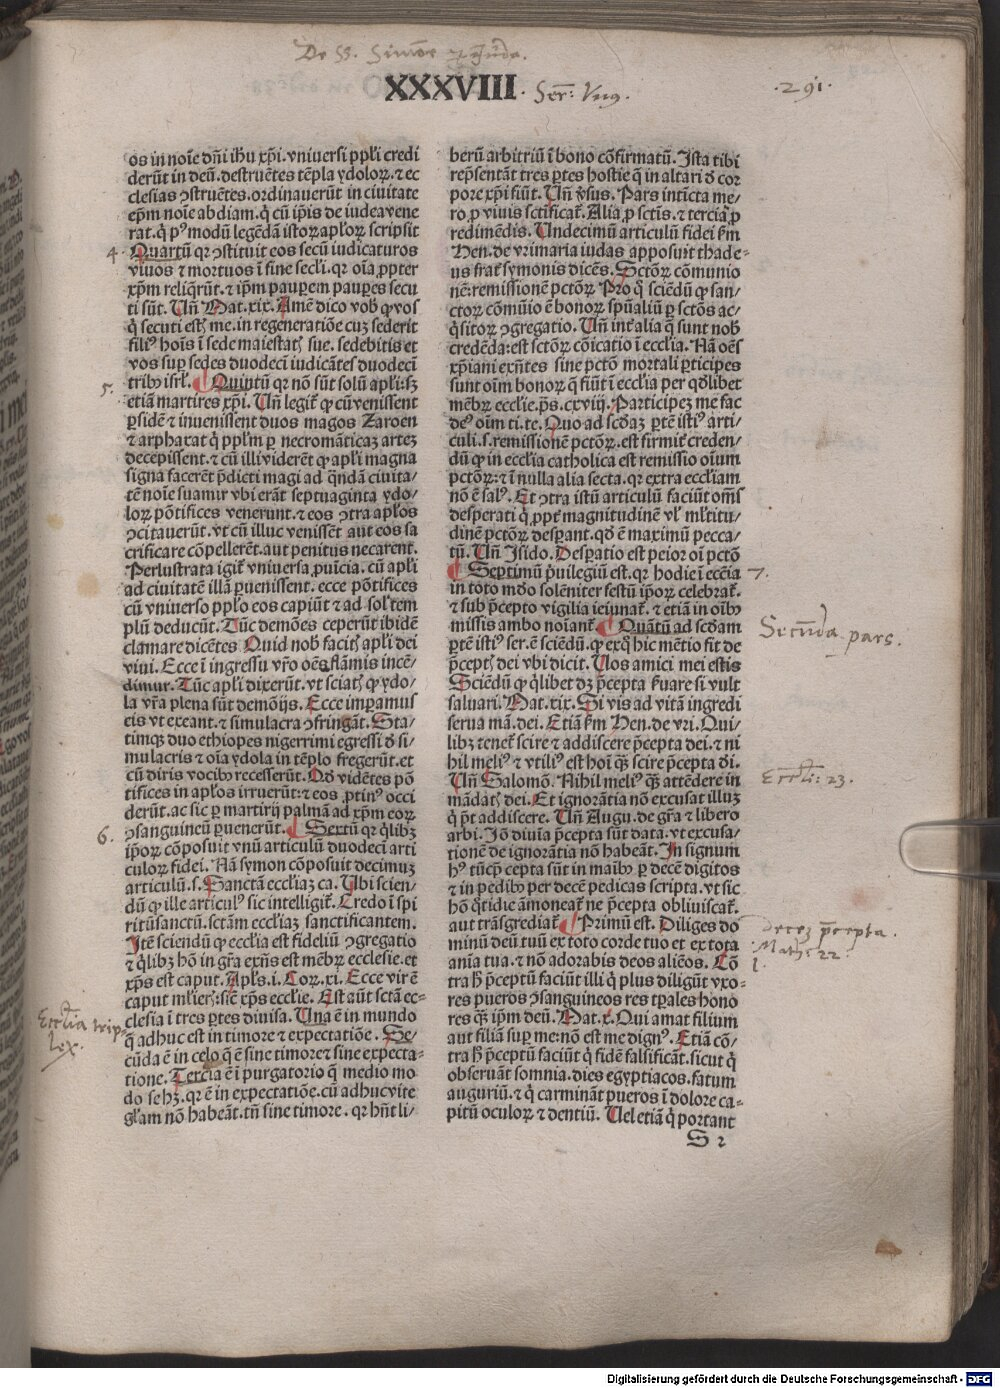 De SS. Simōe et Juda.
XXXVIII. Ser: Vnꝰ. .291.
os in noīe dn̄i ihū xp̄i. vniuersi ppl̄i credi
derūt in deū. destruētes tēpla ydoloꝝ. ⁊ ec
clesias ꝯstruētes. ordinauerūt in ciuitate
ep̄m noīe abdiam. q̇ cū ip̄is de iudea vene
rat. q̇ pꝰ modū legēdā istoꝝ apl̄oꝝ scripsit
4. Quartū qꝛ ꝯstituit eos secū iudicaturos
viuos ⁊ mortuos ī fine secl̄i. qꝛ oīa ꝓpter
xp̄m reliq̄rūt. ⁊ ip̄m pauꝑem pauꝑes secu
ti sūt. Un̄ Mat. xix. Amē dico vob̄ ꝙ vos
q̇ secuti estꝭ me. in regeneratiōe cuꝫ sederit
filiꝰ hoīs ī sede maiestatꝭ sue. sedebitis et
vos suꝑ sedes duodecī iudicātes duodecī
5. tribꝰ isrl̄. Quintū qꝛ nō sūt solū apl̄i: sꝫ
etiā martires xp̄i. Un̄ legit̄ ꝙ cū venissent
ꝑsidē ⁊ inuenissent duos magos Zaroen
⁊ arphacat q̇ ppl̄m ꝑ necromāticaꝫ arteꝫ
decepissent. ⁊ cū illi viderēt ꝙ apl̄i magna
signa facerēt p̄dicti magi ad q̄ndā ciuita/
tē noīe suamir vbi erāt septuaginta ydo/
loꝝ pōtifices venerunt. ⁊ eos ꝯtra apl̄os
ꝯcitauerūt. vt cū illuc venissēt aut eos sa
crificare cōpellerēt. aut penitus necarent.
Perlustrata igit̄ vniuersa ꝓuīcia. cū apl̄i
ad ciuitatē illā ꝑuenissent. ecce pōtifices
cū vniuerso ppl̄o eos capiūt ⁊ ad sol̄ tem
plū deducūt. Tūc demōes ceperūt ibidē
clamare dicētes. Quid nob̄ facitꝭ apl̄i dei
viui. Ecce ī ingressu vr̄o oēs flāmis incē/
dimur. Tūc apl̄i dixerūt. vt sciatꝭ ꝙ ydo/
la vr̄a plena sūt demōijs. Ecce imꝑamus
eis vt exeant. ⁊ simulacra ꝯfringāt. Sta/
timqꝫ duo ethiopes nigerrimi egressi d̄ si/
mulacris ⁊ oīa ydola in tēplo fregerūt. et
cū diris vocibꝰ recesserūt. Qd̄ vidētes pō
tifices in apl̄os irruerūt: ⁊ eos ꝓtinꝰ occi
derūt. ac sic ꝑ martirij palmā ad xp̄m eoꝝ
6. ꝯsanguineū ꝑuenerūt. Sextū qꝛ q̇libꝫ
ip̄oꝝ cōposuit vnū articulū duodeci arti
culoꝝ fidei. Nā symon cōposuit decimuꝫ
articulū. s. Sanctā eccl̄iaꝫ ca. Ubi scien/
dū ꝙ ille articulꝰ sic intelligit̄. Credo ī spi
ritū sanctū. sctam eccl̄iaꝫ sanctificantem.
Itē sciendū ꝙ eccl̄ia est fideliū ꝯgregatio
⁊ q̇libꝫ hō in gr̄a exn̄s est mēbꝝ ecclesie. et
xp̄s est caput. Apl̄s. i. Coꝝ. xi. Ecce vir ē
caput mulierꝭ: sic̄ xp̄s eccl̄ie. Est aūt sctā ec-
Eccl̄ia trip clesia ī tres ꝑtes diuisa. Una ē in mundo
lex. q̄ adhuc est in timore ⁊ expectatiōe. Se/
cūda ē in celo q̄ ē sine timore ⁊ sine expecta-
tione. Tercia ē ī purgatorio q̄ medio mo
do se hꝫ. qꝛ ē in expectatiōe. cū adhuc vite
gl̄am nō habeāt. tn̄ sine timore. qꝛ hn̄t li/
berū arbitriū ī bono cōfirmatū. Ista tibi
rep̄sentāt tres ꝑtes hostie q̄ in altari d̄ cor
pore xp̄i fiūt. Un̄ v̄sus. Pars intīcta me/
ro ꝓ viuis sctificat̄. Alia ꝓ sctis. ⁊ tercia ꝓ
redimēdis. Undecimū articulū fidei fm̄
Hen. de vrimaria iudas apposuit thade-
us frat̄ symonis dicēs. Sctoꝝ cōmunio
nē: remissionē pctōꝝ. Pro q̇ sciendū ꝙ san/
ctoꝝ cōmūio ē bonoꝝ spūaliū ꝑ sctōs ac/
q̇sitoꝝ ꝯgregatio. Un̄ int̄ alia q̄ sunt nob̄
credēda: est sctōꝝ cōicatio ī eccl̄ia. Nā oēs
xp̄iani exn̄tes sine pctō mortali ꝑticipes
sunt oīm bonoꝝ q̄ fiūt ī eccl̄ia per qd̄libet
mēbꝝ eccl̄ie. ps̄. cxviij. Participeꝫ me fac
deꝰ oīm ti. te. Quo ad scdaꝫ ꝑtē istiꝰ arti/
culi. s. remissionē pctōꝝ. est firmit̄ creden/
dū ꝙ in eccl̄ia catholica est remissio oīum
pctōꝝ: ⁊ ī nulla alia secta. qꝛ extra eccl̄iam
nō ē salꝰ. Et ꝯtra istū articulū faciūt om̄s
desperati q̇ ꝓpt̄ magnitudinē vl̄ ml̄titu/
dinē pctōꝝ desꝑant. qd̄ ē maximū pecca/
tū. Un̄ Isido. Desꝑatio est peior oī pctō
Septimū p̄uilegiū est. qꝛ hodie ī eccīa 7.
in toto mdo soleniter festū ip̄oꝝ celebrat̄.
⁊ sub p̄cepto vigilia ieiunat̄. ⁊ etiā in oībꝰ
missis ambo noīant̄. Quātū ad scdam Secūda pars.
ꝑtē istiꝰ ser. ē sciēdū. ꝙ exq̇ hic mētio fit de
p̄ceptꝭ dei vbi dicit. Vos amici mei estis
Sciēdū ꝙ q̇libet dꝫ p̄cepta ẜuare si vult
saluari. Mat. xix. Si vis ad vitā ingredi
serua mā. dei. Etiā fm̄ Hen. de vri. Qui/
libꝫ tenet̄ scire ⁊ addiscere p̄cepta dei. ⁊ ni
hil meliꝰ ⁊ vtiliꝰ est hoī q̄ꝫ scire p̄cepta di.
Un̄ Salomō. Nihil meliꝰ q̄ꝫ attēdere in Eccl̄i: 23.
mādatꝭ dei. Et ignorātia nō excusat illuꝫ
q̇ p̄t addiscere. Un̄ Augu. de gr̄a ⁊ libero
arbi. Iō diuīa p̄cepta sūt data. vt excusa/
tionē de ignorātia nō habeāt. In signum
hꝰ tūc p̄cepta sūt in maībꝰ ꝑ decē digitos
⁊ in pedibꝰ per decē pedicas scripta. vt sic
hō q̄tidie āmoneat̄ ne p̄cepta obliuiscat̄.
aut trāsgrediat̄. Primū est. Diliges do Decē p̄cepta.
minū deū tuū ex toto corde tuo et ex tota Math: 22.
anīa tua. ⁊ nō adorabis deos aliēos. Cō 1.
tra h̄ p̄ceptū faciūt illi q̇ plus diligūt vxo-
res pueros ꝯsanguineos res tꝑales hono
res q̄ꝫ ip̄m deū. Mat. x. Qui amat filium
aut filiā suꝑ me: nō est me dignꝰ. Etiā cō/
tra h̄ p̄ceptū faciūt q̇ fidē falsificāt. sicut q̇
obseruāt somnia. dies egyptiacos. fatum
auguriū. ⁊ q̇ carmināt pueros ī dolore ca-
pitū oculoꝝ ⁊ dentiū. Uel etiā q̇ portant
S 2
Digitalisierung gefördert durch die Deutsche Forschungsgemeinschaft - DFG